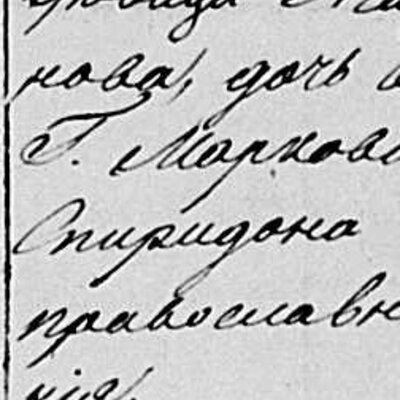 нова, дочь
Г. Марков
Спиридона
православн
нія,